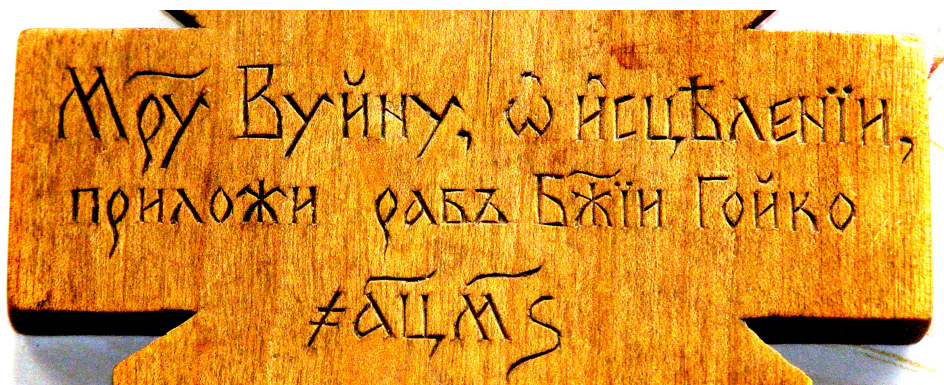 Мр҃у Вуйну, ѽ и҆сцѣленїи,
приложи рабъ Бж҃їи Гойко
҂а҃цм҃ѕ